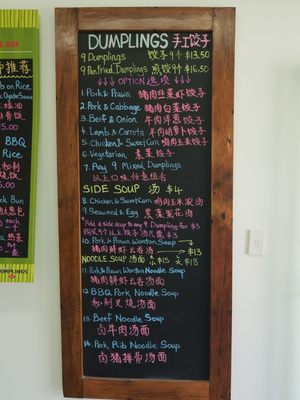 DUMPLINGS 手工饺子
9 Dumplings 饺子9个 $13.50
9 Pan Fried Dumplings 煎饺9个 $16.50
↓↓↓ OPTION 选项 ↓↓↓
1. Pork & Prawn 猪肉韭菜虾饺子
2. Pork & Cabbage 猪肉白菜饺子
3. Beef & Onion 牛肉洋葱饺子
4. Lamb & Carrots 羊肉胡萝卜饺子
5. Chicken & Sweet Corn 鸡肉玉米饺子
6. Vegetarian 素菜饺子
7. Any 9 Mixed Dumplings
以上口味任意组合
SIDE SOUP 汤 $4
8. Chicken & Sweet Corn 鸡肉玉米浓汤
9. Seaweed & Egg 紫菜蛋花汤
Add a side soup to any 9 Dumpling for $3
10. Pork & Prawn Wonton Soup
猪肉鲜虾云吞汤 $13
NOODLE SOUP 汤面
11. Pork & Prawn Wonton Noodle Soup
猪肉鲜虾云吞汤面
12. BBQ Pork Noodle Soup
秘制叉烧汤面
13. Beef Noodle Soup
卤牛肉汤面
14. Pork Rib Noodle Soup
卤猪排骨汤面
DAY
on Rice
BBQ
Rice
Bun